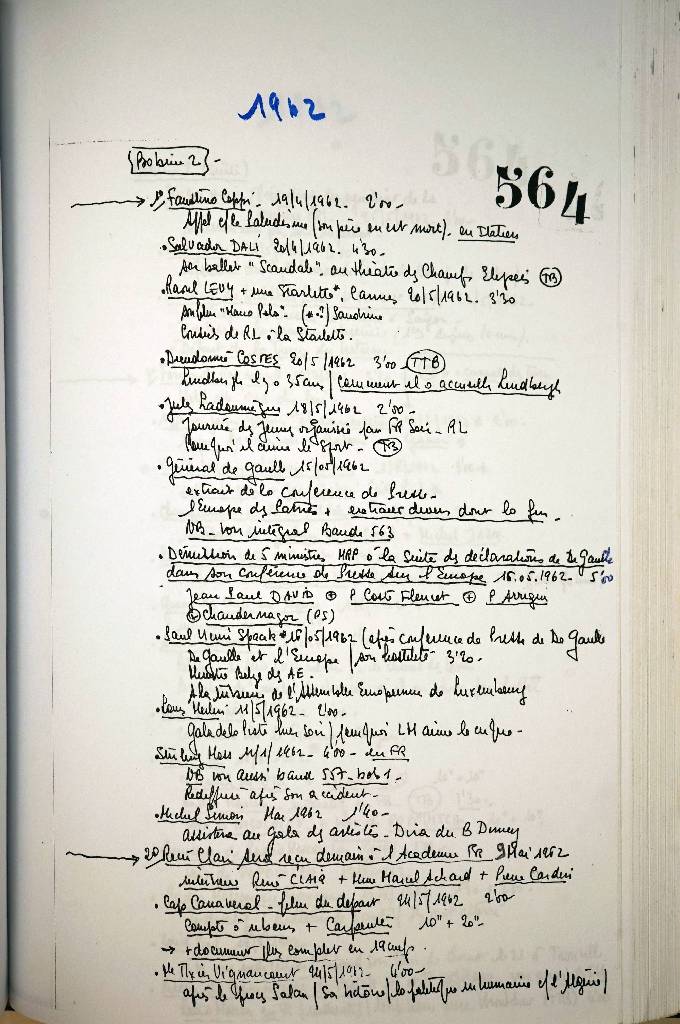 1962
Bobine 2 -
564
1° Faustino Coppi - 19/4/1962 - 2'00 -
Appel c/le Paludisme (son père en est mort). en Italien
• Salvador DALI 20/4/1962 - 4'30 -
son ballet "Scandale" au théâtre des Champs Elysées (TB)
• Raoul LEVY + une Starlette*, Cannes 20/5/1962 - 3'30
son film "Marco Polo" - (*-?) Sandrine
Conseils de RL à la Starlette.
• Dieudonné COSTES 20/5/1962 3'00 (TTB)
Lindbergh il y a 35 ans / Comment il a accueilli Lindbergh
• Jules Ladoumègue 18/5/1962 2'00 -
Journée des Jeunes organisée par FR Soir - RL
Pourquoi il aime le Sport - (TB)
• Général de Gaulle 15/05/1962
extrait de la conférence de Presse -
l'Europe des Patries + extraits divers dont la fin -
NB - voir intégral Bande 563
• Démission de 5 ministres MRP à la suite des déclarations de De Gaulle
dans son conférence de Presse sur l'Europe 16.05.1962 - 5'00
Jean Paul DAVID + P Coste Fleuret + P Arrigui
+ Chandernagor (PS)
• Paul Henri Spaak * 16/05/1962 (après conférence de Presse de De Gaulle
De Gaulle et l'Europe / son hostilité 3'20 -
Ministre Belge des AE -
A la tribune de l'Assemblée Européenne de Luxembourg
• Louis Merlin 11/5/1962 - 2'00 -
Gala de la Piste hier soir / pourquoi LM aime le cirque -
Stirling Moss 1/1/1962 - 4'00 - en FR
NB voir aussi band 557 - bob 1 -
Rediffusé après son accident -
• Michel Simon Mai 1962 1'40 -
assistera au Gala des artistes - Dira du B
2° René Clair sera reçu demain à l'Academie FR 9 Mai 1962
interview René CLAIR + Mme Marcel Achard + Pierre Cardin
• Cap Canaveral - film du départ 24/5/1962 2'00
Compte à rebours + Carpenter 10" + 20" -
→ + document plus complet en 19 cm/s .
• Me Tixier Vignancourt 24/5/1962 - 4'00 -
après le procès Salan / Sa victoire / la politique inhumaine c/ l'Algérie /